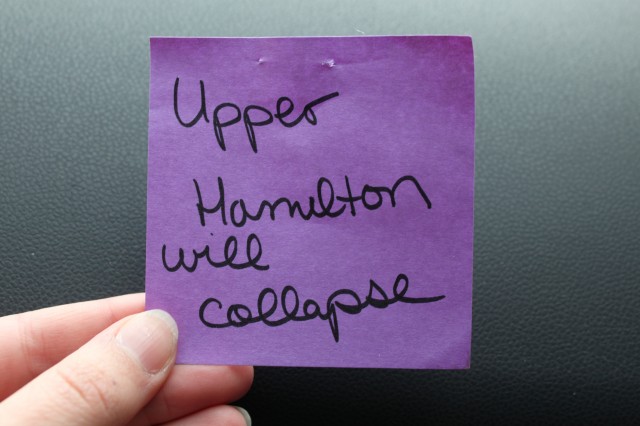 Upper
Hamilton
will
collapse